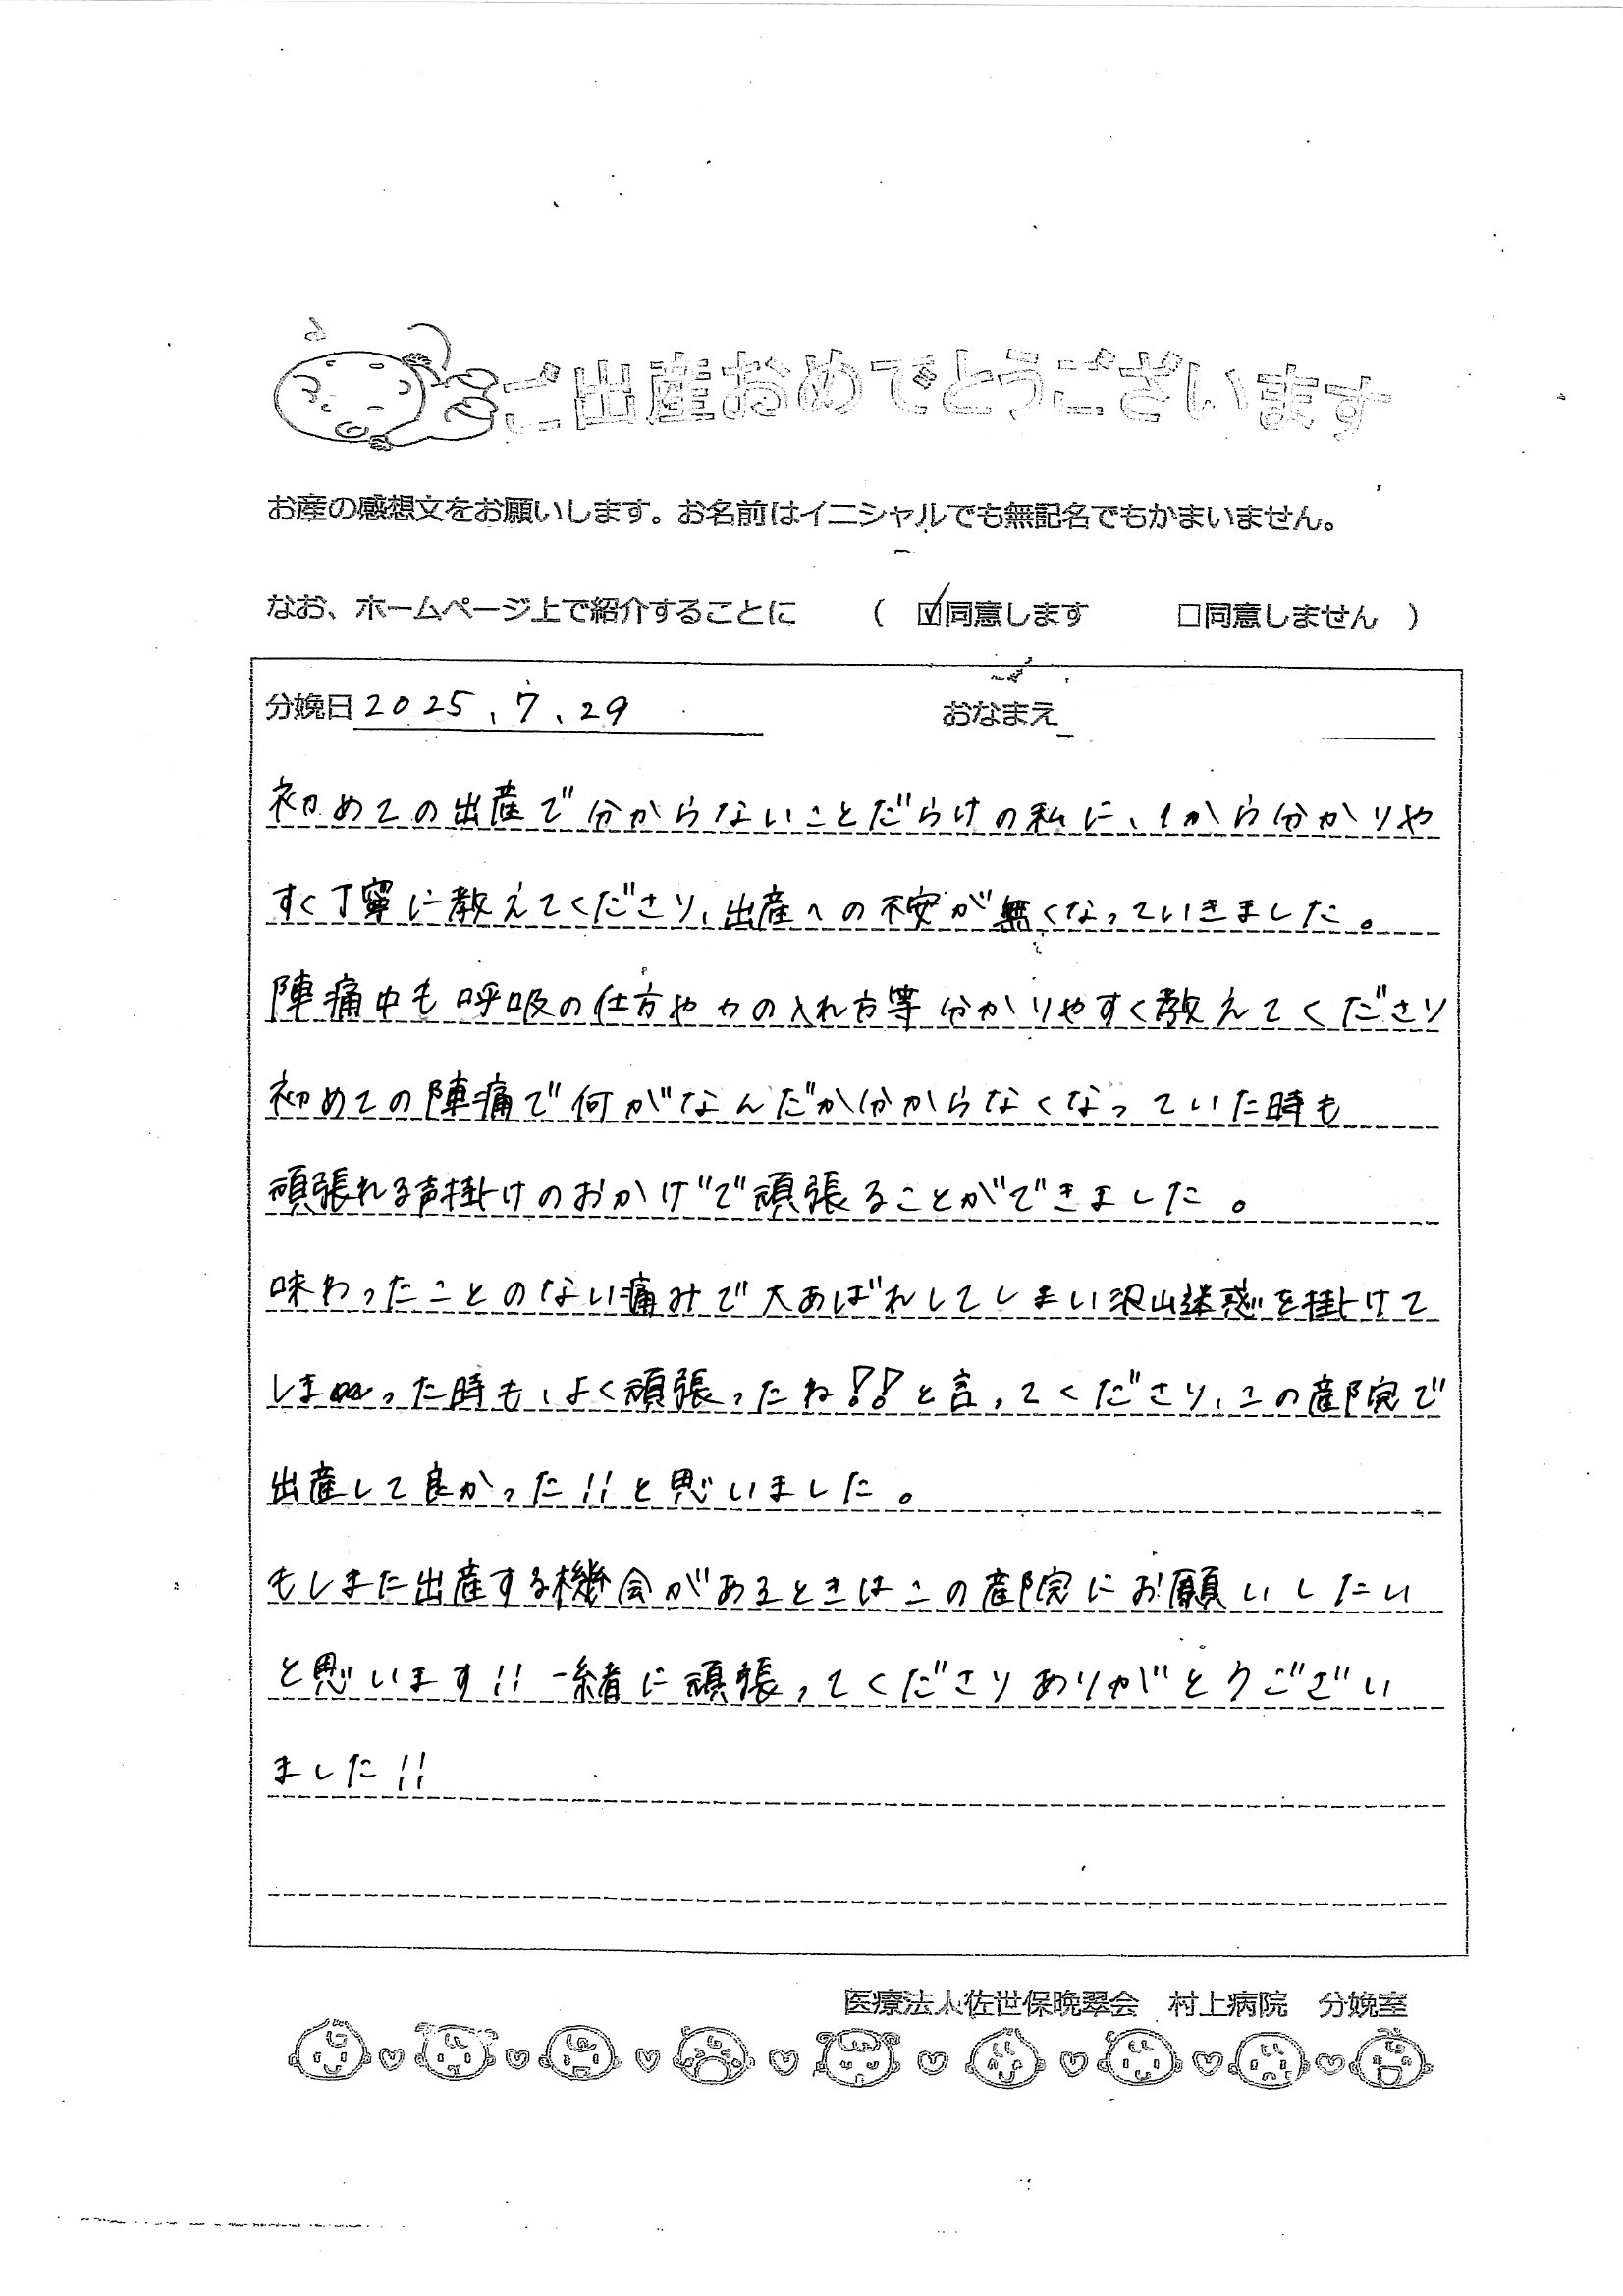 ご出産おめでとうございます
お産の感想文をお願いします。お名前はイニシャルでも無記名でもかまいません。
なお、ホームページ上で紹介することに ( ☑同意します □同意しません )
分娩日 2025.7.29 おなまえ
初めての出産で分からないことだらけの私に、1から分かりや
すく丁寧に教えてくださり、出産への不安が無くなっていきました。
陣痛中も呼吸の仕方や力の入れ方等分かりやすく教えてくださり
初めての陣痛で何がなんだか分からなくなっていた時も
頑張れる声掛けのおかげで頑張ることができました。
味わったことのない痛みで大あばれしてしまい沢山迷惑を掛けて
しまった時も、よく頑張ったね!!と言ってくださり、この産院で
出産して良かった!!と思いました。
もしまた出産する機会があるときはこの産院にお願いしたい
と思います!!一緒に頑張ってくださりありがとうござい
ました!!
医療法人佐世保晩翠会 村上病院 分娩室